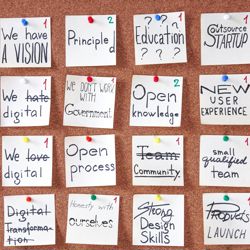 We have
A VISION
1
Principled
2
Education
? ? ?
? ?
Outsource
STARTUP
We hate
digital
1
WE DON'T WORK
WITH
Government
1
Open
knowledge
2
NEW
USER
EXPERIENCE
We love
digital
Open
process
1
Team
Community
small
qualified
team
Digital
Transforma
tion
Honesty with
ourselves
1
Strong
Design
Skills
LAUNCH